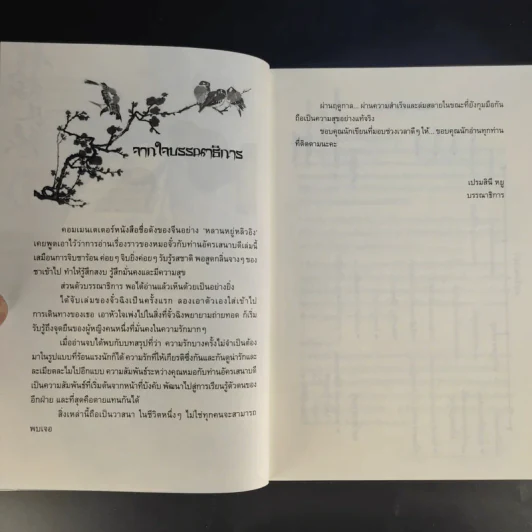 จากใจบรรณาธิการ
คอมเมนเตเตอร์หนังสือชื่อดังของจีนอย่าง ‘หลานหยู่หลิวอิง’
เคยพูดเอาไว้ว่าการอ่านเรื่องราวของหมอจิ๋วกับท่านอัครเสนาบดีเล่มนี้
เสมือนการจิบชาร้อน ค่อยๆ จิบยิ่งค่อยๆ รับรู้รสชาติ พอสูดกลิ่นจางๆ ของ
ชาเข้าไป ทำให้รู้สึกสงบ รู้สึกมั่นคงและมีความสุข
ส่วนตัวบรรณาธิการ พอได้อ่านแล้วเห็นด้วยเป็นอย่างยิ่ง
ได้จับเล่มของจิ้วฉิงเป็นครั้งแรก ลองเอาตัวเองใส่เข้าไป
การเดินทางของเธอ เอาหัวใจเพ่งไปในสิ่งที่จิ้วฉิงพยายามถ่ายทอด ก็เริ่ม
รับรู้ถึงจุดยืนของผู้หญิงคนหนึ่งที่มั่นคงในความรักมากๆ
เมื่ออ่านจบได้พบกับบทสรุปที่ว่า ความรักบางครั้งไม่จำเป็นต้อง
มาในรูปแบบที่ร้อนแรงนักก็ได้ ความรักที่ให้เกียรติซึ่งกันและกันดูน่ารักและ
ละเมียดละไมไปอีกแบบ ความสัมพันธ์ระหว่างคุณหมอกับท่านอัครเสนาบดี
เป็นความสัมพันธ์ที่เริ่มต้นจากหน้าที่บังคับ พัฒนาไปสู่การเรียนรู้ตัวตนของ
อีกฝ่าย และที่สุดคือตายแทนกันได้
สิ่งเหล่านี้ถือเป็นวาสนา ในชีวิตหนึ่งๆ ไม่ใช่ทุกคนจะสามารถ
พบเจอ
ผ่านฤดูกาล... ผ่านความสำเร็จและล่มสลายในขณะที่ยังกุมมือกัน
ถือเป็นความสุขอย่างแท้จริง
ขอบคุณนักเขียนที่มอบช่วงเวลาดีๆ ให้... ขอบคุณนักอ่านทุกท่าน
ที่ติดตามนะคะ
เปรมสินี หยู
บรรณาธิการ